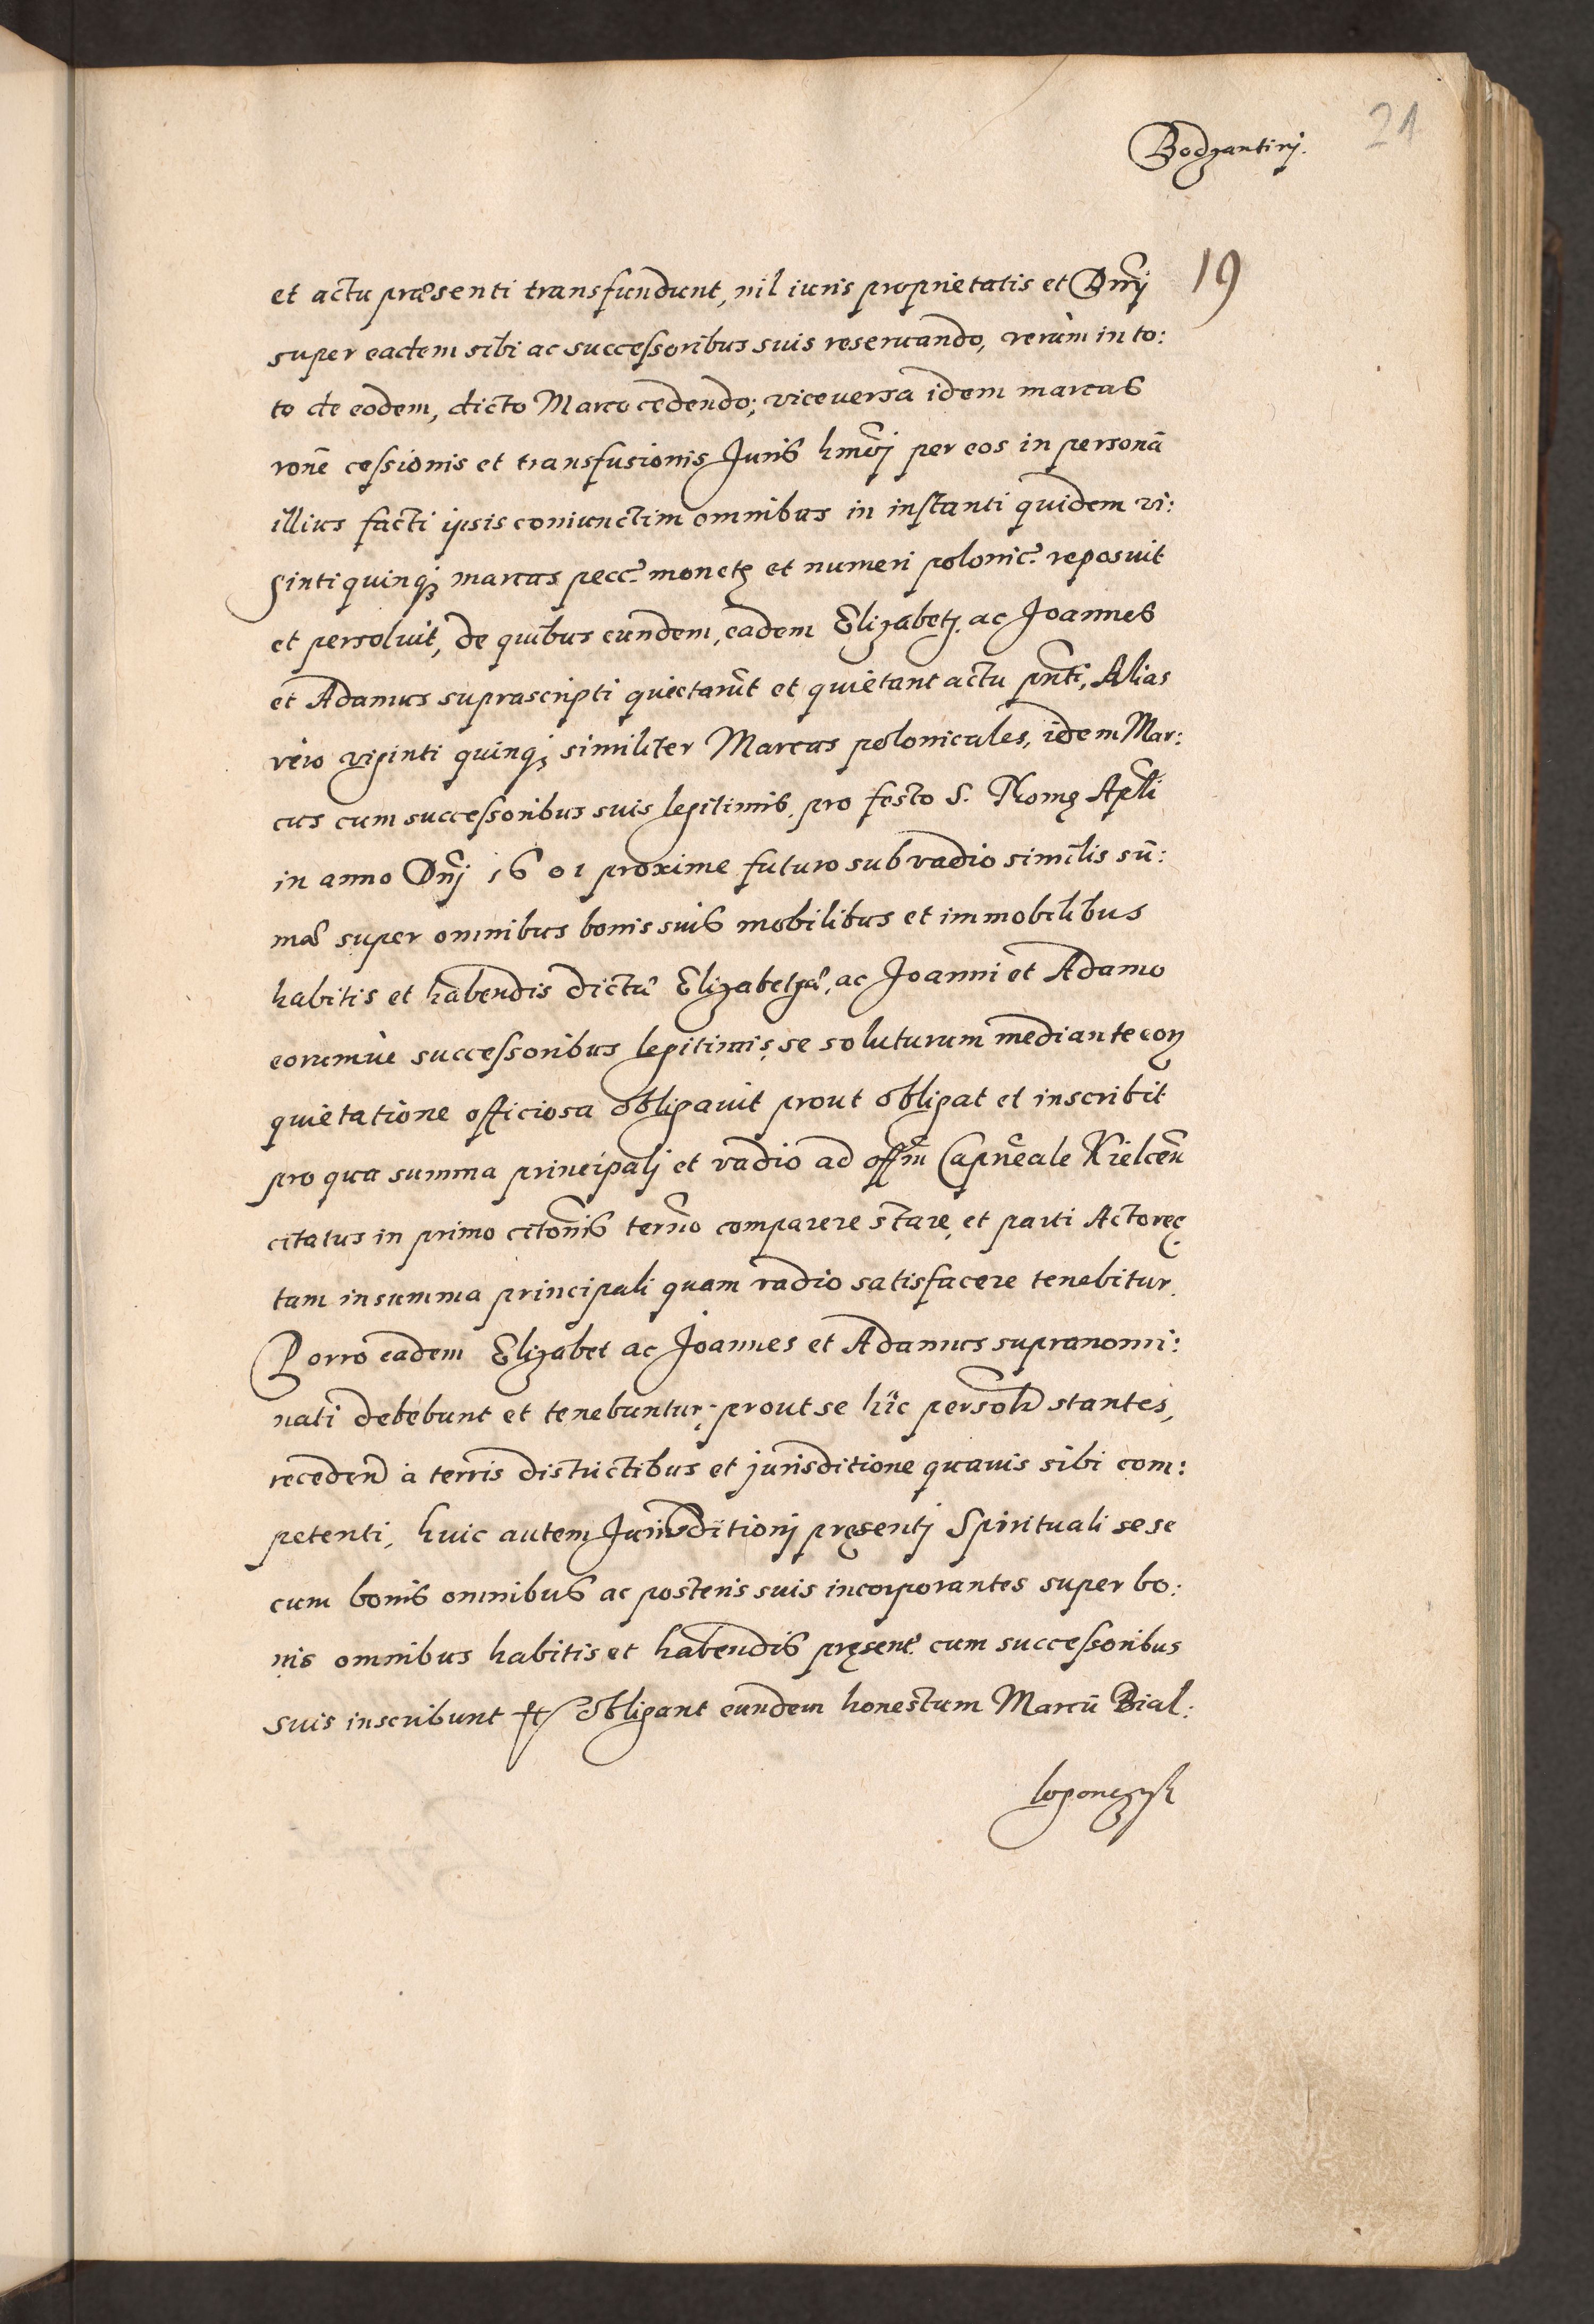 21
Bodzantinj.
19
et actu præsenti transfundunt, nil iuris proprietatis et Dnÿ
super eadem sibi ac successoribus suis reseruando, verùm in to:
to de eodem, dicto Marco cedendo; viceuersa idem marcus
ronē cessionis et transfusionis Juris hmōi per eos in personā
illius facti ipsis coniunctim omnibus in instanti quidem vi:
ginti quinq; marcas pecc. monetę et numeri polonic. reposuit
et persoluit, de quibus eundem, eadem Elizabetj. ac Joannes
et Adamus suprascripti quiectarūt et quietant actu pn̄ti, Alias
vero viginti quinq; similiter Marcas polonicales, idem Mar:
cus cum successoribus suis legitimis. pro festo S. Thomę Apli
in anno Dnj 1601 proxime futuro sub vadio similis sū:
mæ super omnibus bonis suis mobilibus et immobilibus
habitis et habendis dictæ Elizabethæ, ac Joanni et Adamo
eorumue successoribus legitimis, se soluturum mediante eoꝝ
quietatione officiosa obligauit prout obligat et inscribit
pro qua summa principalj et vadio ad offm Capneale Kielcēn
citatus in primo citōnis termno comparere stare, et parti Actoreę
tam in summa principali quam vadio satisfacere tenebitur.
Porro eadem Elizabet ac Joannes et Adamus supranomi:
nati debebunt et tenebuntur; prout se hîc personlr stantes,
receden à terris districtibus et jurisditione quauis sibi com:
petenti, huic autem Jurisditionj pręsentj Spirituali sese
cum bonis omnibus ac posteris suis incorporantes super bo:
nis omnibus habitis et habendis pręsent. cum successoribus
suis inscribunt et obligant eundem honestum Marcū Bial:
logonczyk